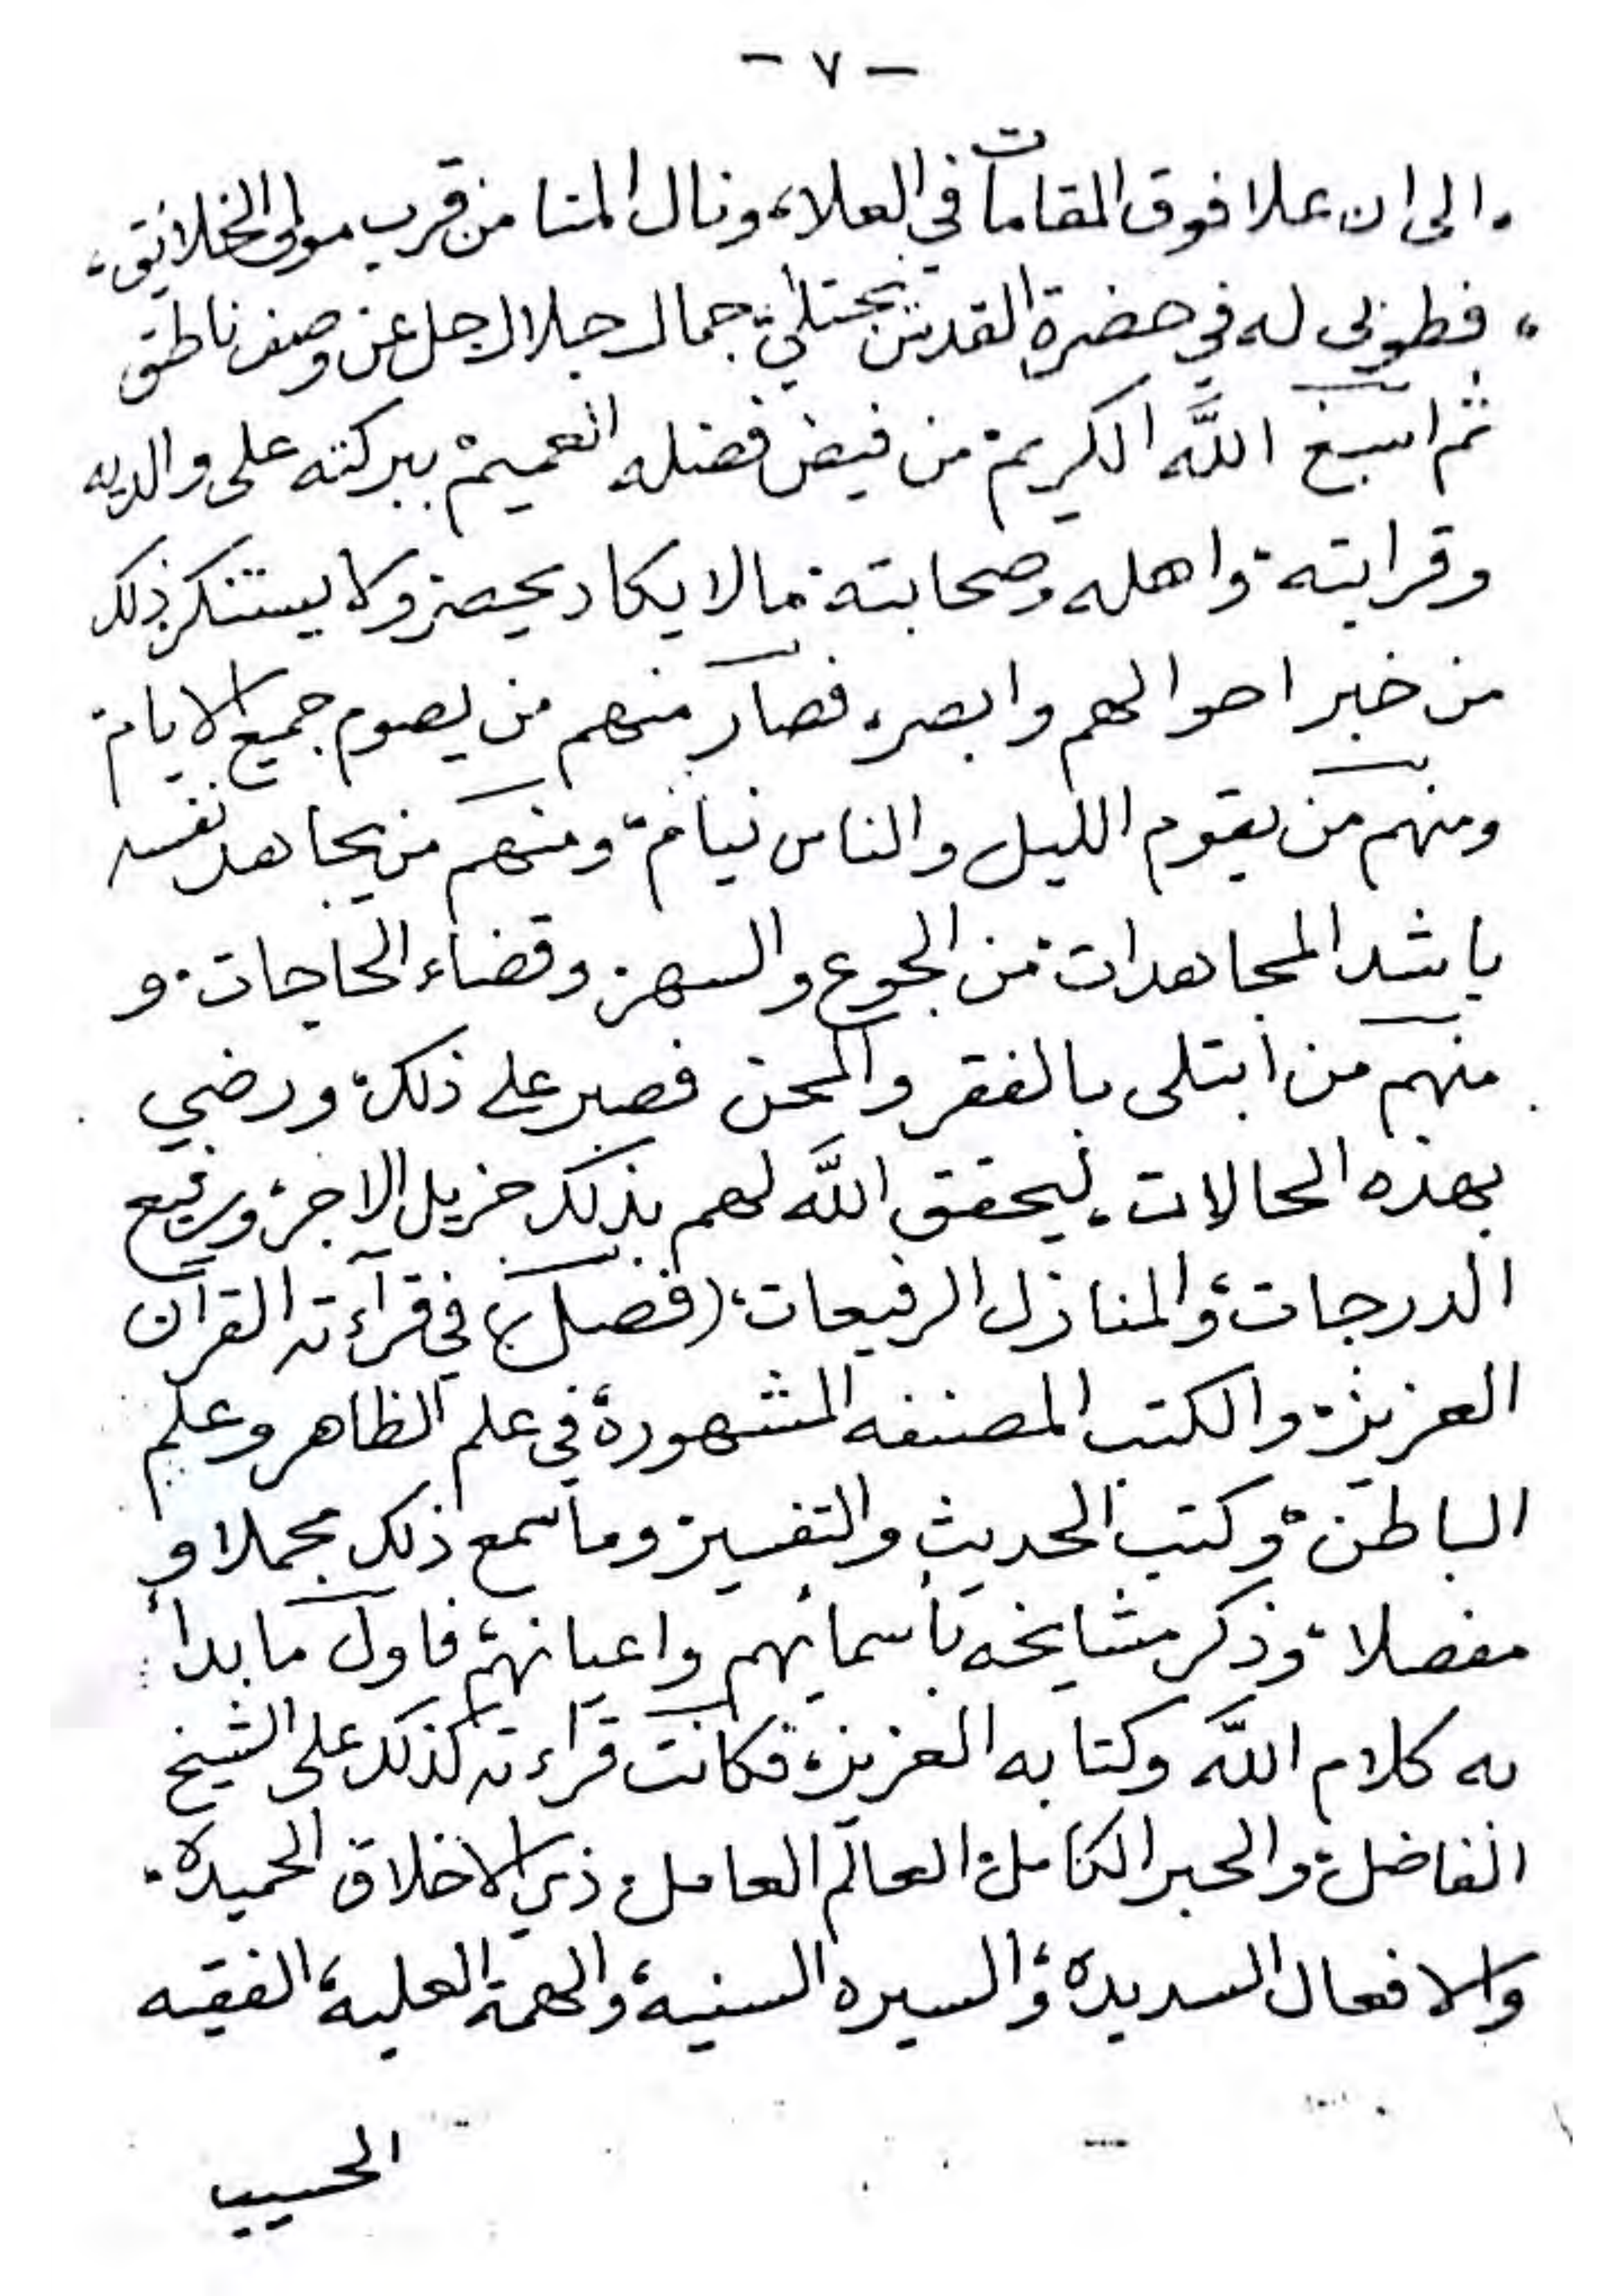 - ٧ -
، الى ان علا فوق المقامات في العلا، ونال المنا من قرب مولى الخلائق،
، فطوبى له في حضرة القدس يجتلي، جمال جلال جل عن وصف ناطق
ثم اسبغ اللَّه الكريم، من فيض فضله العميم، ببركته على والديه
وقرابته، واهله وصحابته، مالا يكاد يحصر، ولا يستنكر ذلك
من خبر احوالهم وابصر، فصار منهم من يصوم جميع الايام،
ومنهم من يقوم الليل والناس نيام، ومنهم من يجاهد نفسه
باشد المجاهدات، من الجوع والسهر، وقضاء الحاجات، و
منهم من ابتلى بالفقر والمحن فصبر على ذلك، ورضي
بهذه الحالات، ليحقق اللَّه لهم بذلك جزيل الاجر، ورفيع
الدرجات، والمنازل الرفيعات، (فصل) في قرآءته القرآن
العزيز، والكتب المصنفه المشهورة، في علم الظاهر وعلم
الباطن، وكتب الحديث والتفسير، وما سمع ذلك مجملا و
مفصلا، وذكر مشايخه باسمائهم واعيانهم، فاول ما بدأ
به كلام اللَّه وكتابه العزيز، فكانت قراءته كذلك على الشيخ
الفاضل، والحبر الكامل، العالم العامل، ذي الاخلاق الحميدة،
والافعال السديدة، والسيره السنية، والهمة العلية، الفقيه
الحسيب